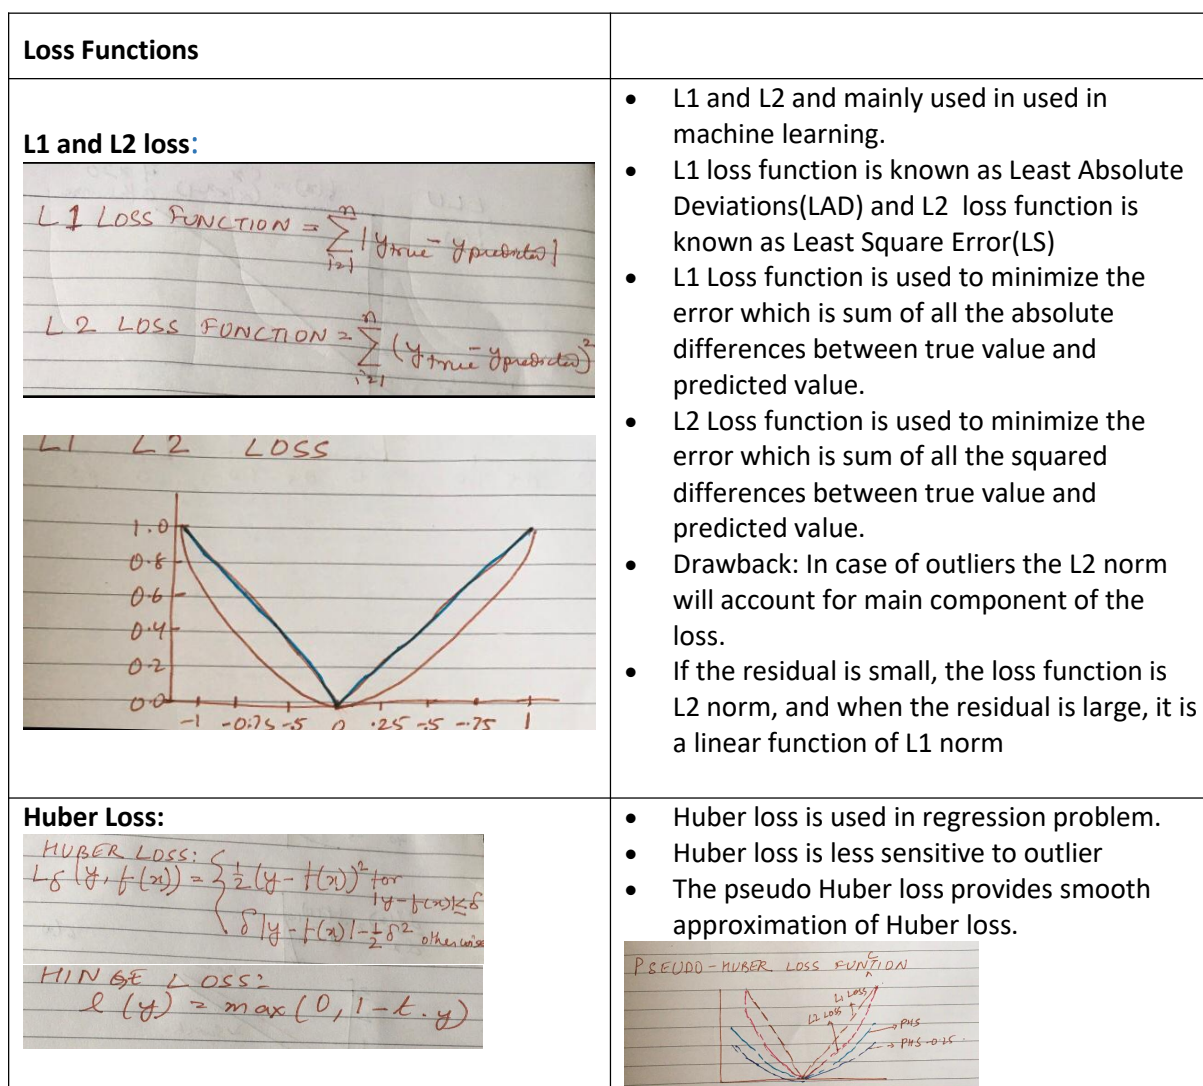 Loss Functions
L1 and L2 loss:
L1 LOSS FUNCTION = n∑i=1 |ytrue - ypredicted|
L2 LOSS FUNCTION = n∑i=1 (ytrue - ypredicted)²
L1 L2 LOSS
1.0
0.8
0.6
0.4
0.2
0.0
-1 -0.75 -5 0 .25 -5 -.75 1
• L1 and L2 and mainly used in used in
machine learning.
• L1 loss function is known as Least Absolute
Deviations(LAD) and L2 loss function is
known as Least Square Error(LS)
• L1 Loss function is used to minimize the
error which is sum of all the absolute
differences between true value and
predicted value.
• L2 Loss function is used to minimize the
error which is sum of all the squared
differences between true value and
predicted value.
• Drawback: In case of outliers the L2 norm
will account for main component of the
loss.
• If the residual is small, the loss function is
L2 norm, and when the residual is large, it is
a linear function of L1 norm
Huber Loss:
HUBER LOSS:
Lδ(y, f(x)) = { ½(y - f(x))² for
|y - f(x)| ≤ δ
δ|y - f(x)| - ½δ² otherwise
HINGE LOSS:
l(y) = max(0, 1 - t.y)
• Huber loss is used in regression problem.
• Huber loss is less sensitive to outlier
• The pseudo Huber loss provides smooth
approximation of Huber loss.
PSEUDO-HUBER LOSS FUNCTION
L1 LOSS
L2 LOSS
PHS
PHS-0.25